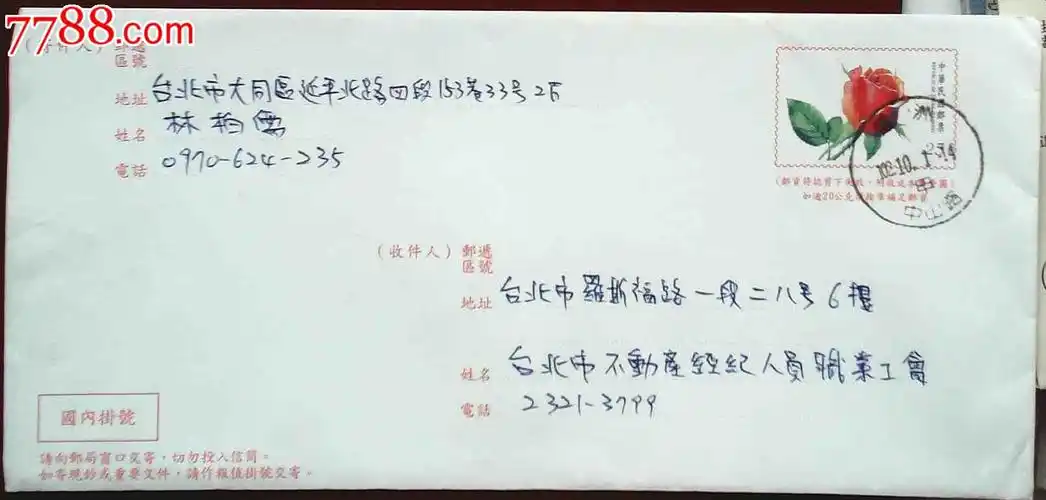 7788.com
(寄件人) 郵遞
區號
地址 台北市大同區延平北路四段153巷33号2F
姓名 林柏儒
電話 0970-624-235
中華民國郵票
洲
102.10.1.14
甲
中山路
如逾20公克請按章補足郵資
(收件人) 郵遞
區號
地址 台北市羅斯福路一段二八号6樓
姓名 台北市不動產經紀人員職業工會
電話 2321-3799
國內掛號
請向郵局窗口交寄,切勿投入信筒。
如寄現鈔或重要文件,請作報值掛號交寄。